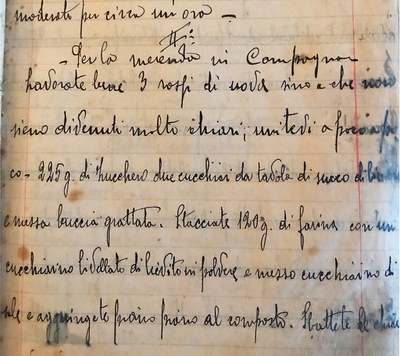 moderato per circa un'ora -
- Per la merenda in Campagna
Lavorate bene 3 rossi di uova sino a che non
sieno divenuti molto chiari; unitevi a poco a po
co - 225 g. di zucchero due cucchiai da tavola di succo di
e mezza buccia grattata. Stacciate 120 g. di farina con un
cucchiaino livellato di lievito in polvere e mezzo cucchiaino di
sale e aggiungete piano piano al composto. Sbattete le